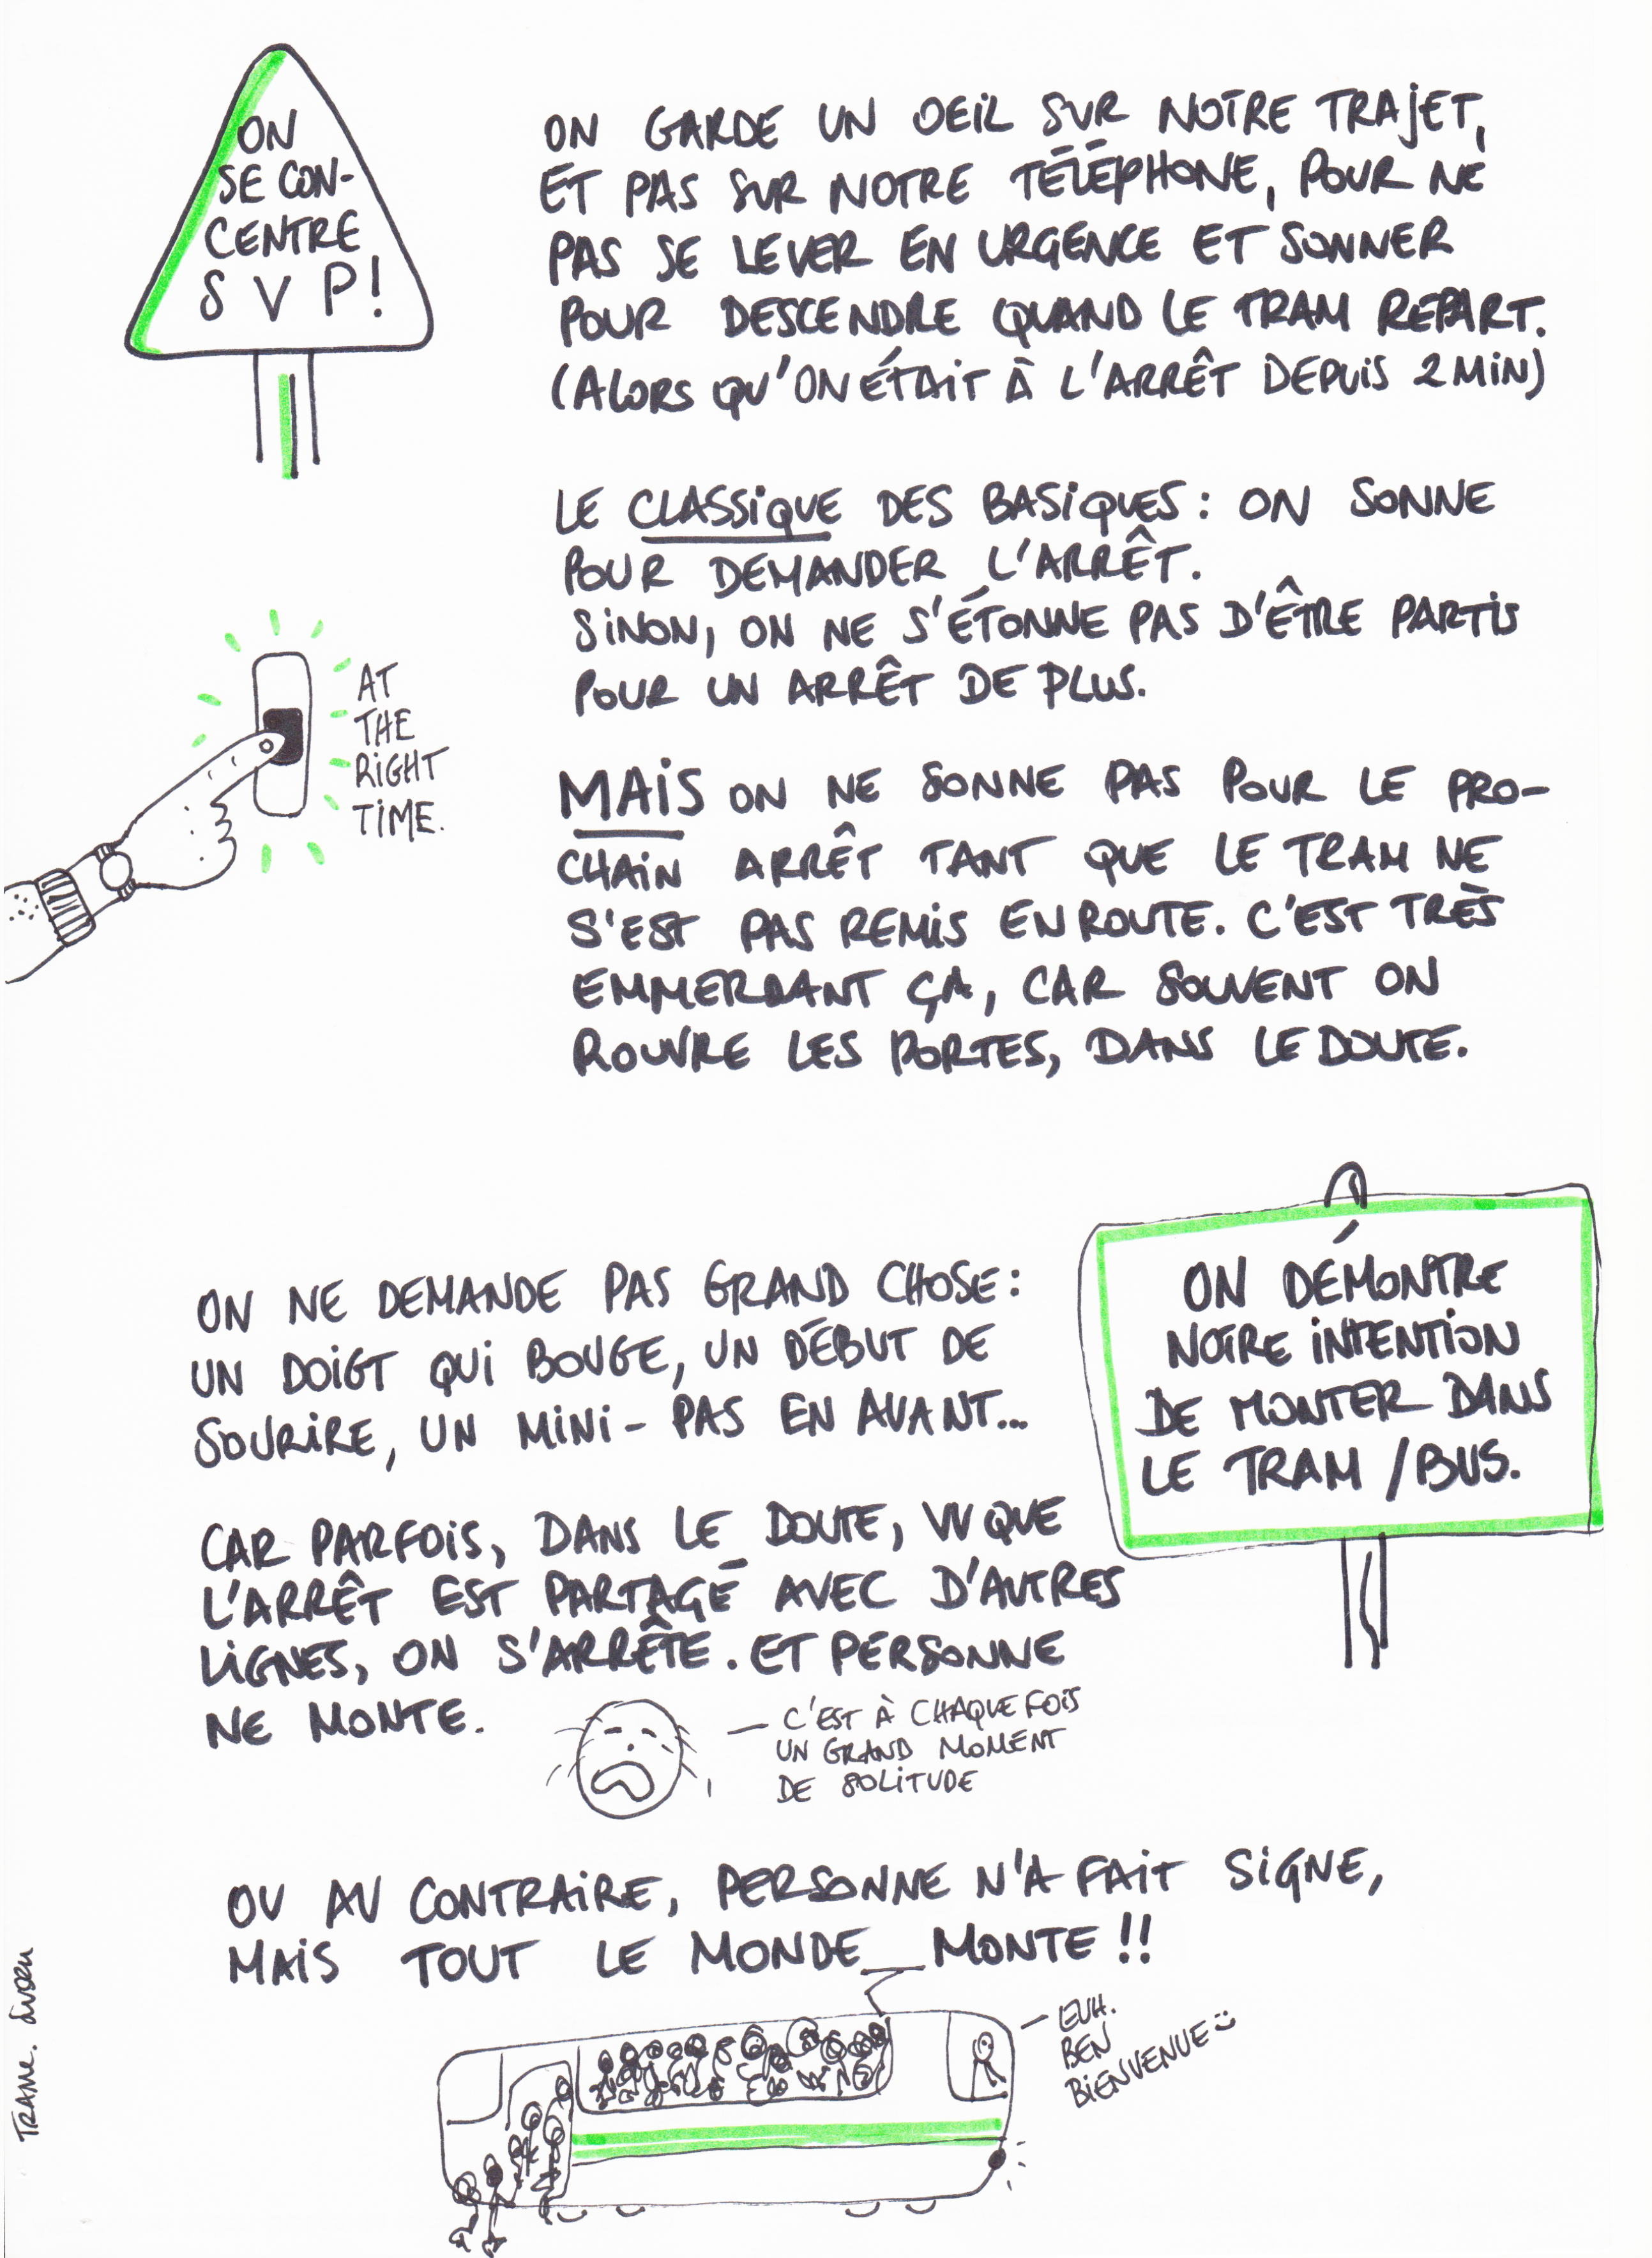 ON
SE CON-
CENTRE
S V P!
ON GARDE UN OEIL SUR NOTRE TRAJET,
ET PAS SUR NOTRE TÉLÉPHONE, POUR NE
PAS SE LEVER EN URGENCE ET SONNER
POUR DESCENDRE QUAND LE TRAM REPART.
(ALORS QU'ON ÉTAIT À L'ARRÊT DEPUIS 2 MIN)
LE CLASSIQUE DES BASIQUES : ON SONNE
POUR DEMANDER L'ARRÊT.
SINON, ON NE S'ÉTONNE PAS D'ÊTRE PARTIS
POUR UN ARRÊT DE PLUS.
AT
THE
RIGHT
TIME.
MAIS ON NE SONNE PAS POUR LE PRO-
CHAIN ARRÊT TANT QUE LE TRAM NE
S'EST PAS REMIS EN ROUTE. C'EST TRÈS
EMMERDANT ÇA, CAR SOUVENT ON
ROUVRE LES PORTES, DANS LE DOUTE.
ON DÉMONTRE
NOTRE INTENTION
DE MONTER DANS
LE TRAM / BUS.
ON NE DEMANDE PAS GRAND CHOSE :
UN DOIGT QUI BOUGE, UN DÉBUT DE
SOURIRE, UN MINI - PAS EN AVANT...
CAR PARFOIS, DANS LE DOUTE, VU QUE
L'ARRÊT EST PARTAGÉ AVEC D'AUTRES
LIGNES, ON S'ARRÊTE. ET PERSONNE
NE MONTE.
— C'EST À CHAQUE FOIS
UN GRAND MOMENT
DE SOLITUDE
OU AU CONTRAIRE, PERSONNE N'A FAIT SIGNE,
MAIS TOUT LE MONDE MONTE !!
— EUH.
BEN
BIENVENUE :)
TRAME.